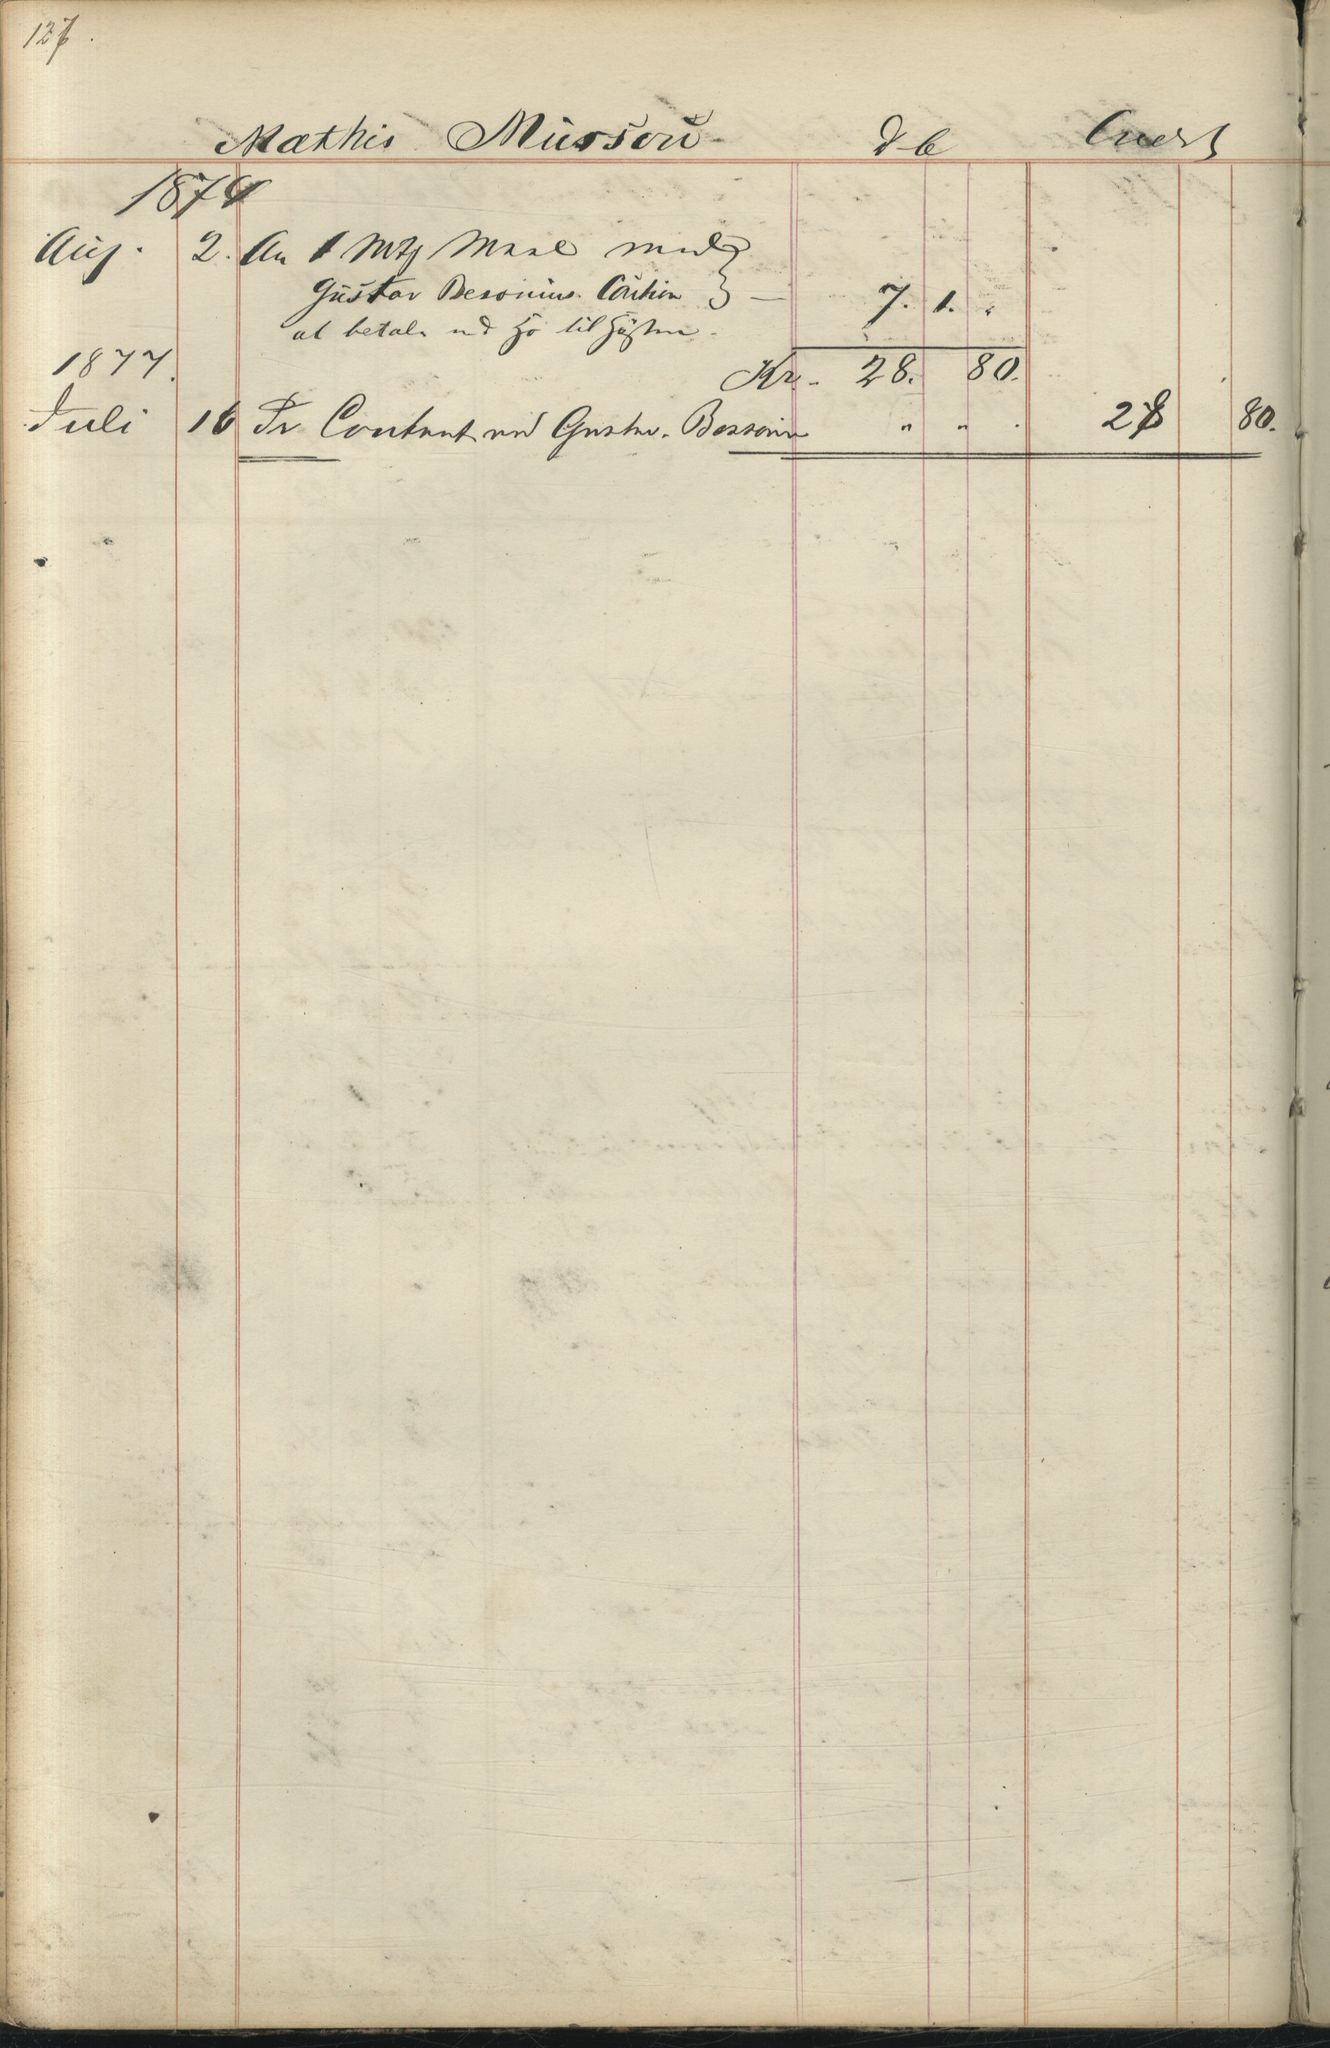 127.
Mathis Mursou db Credt
1874
Aug. 2. An 1 Mtz Maal med
Gustav Besonius Cöution 7. 1. "
at betale ved Hö til Hösten.
1877. Kr. 28. 80.
Juli 16 Pr Contant ved Gustav. Bessonius " " . 28 80.